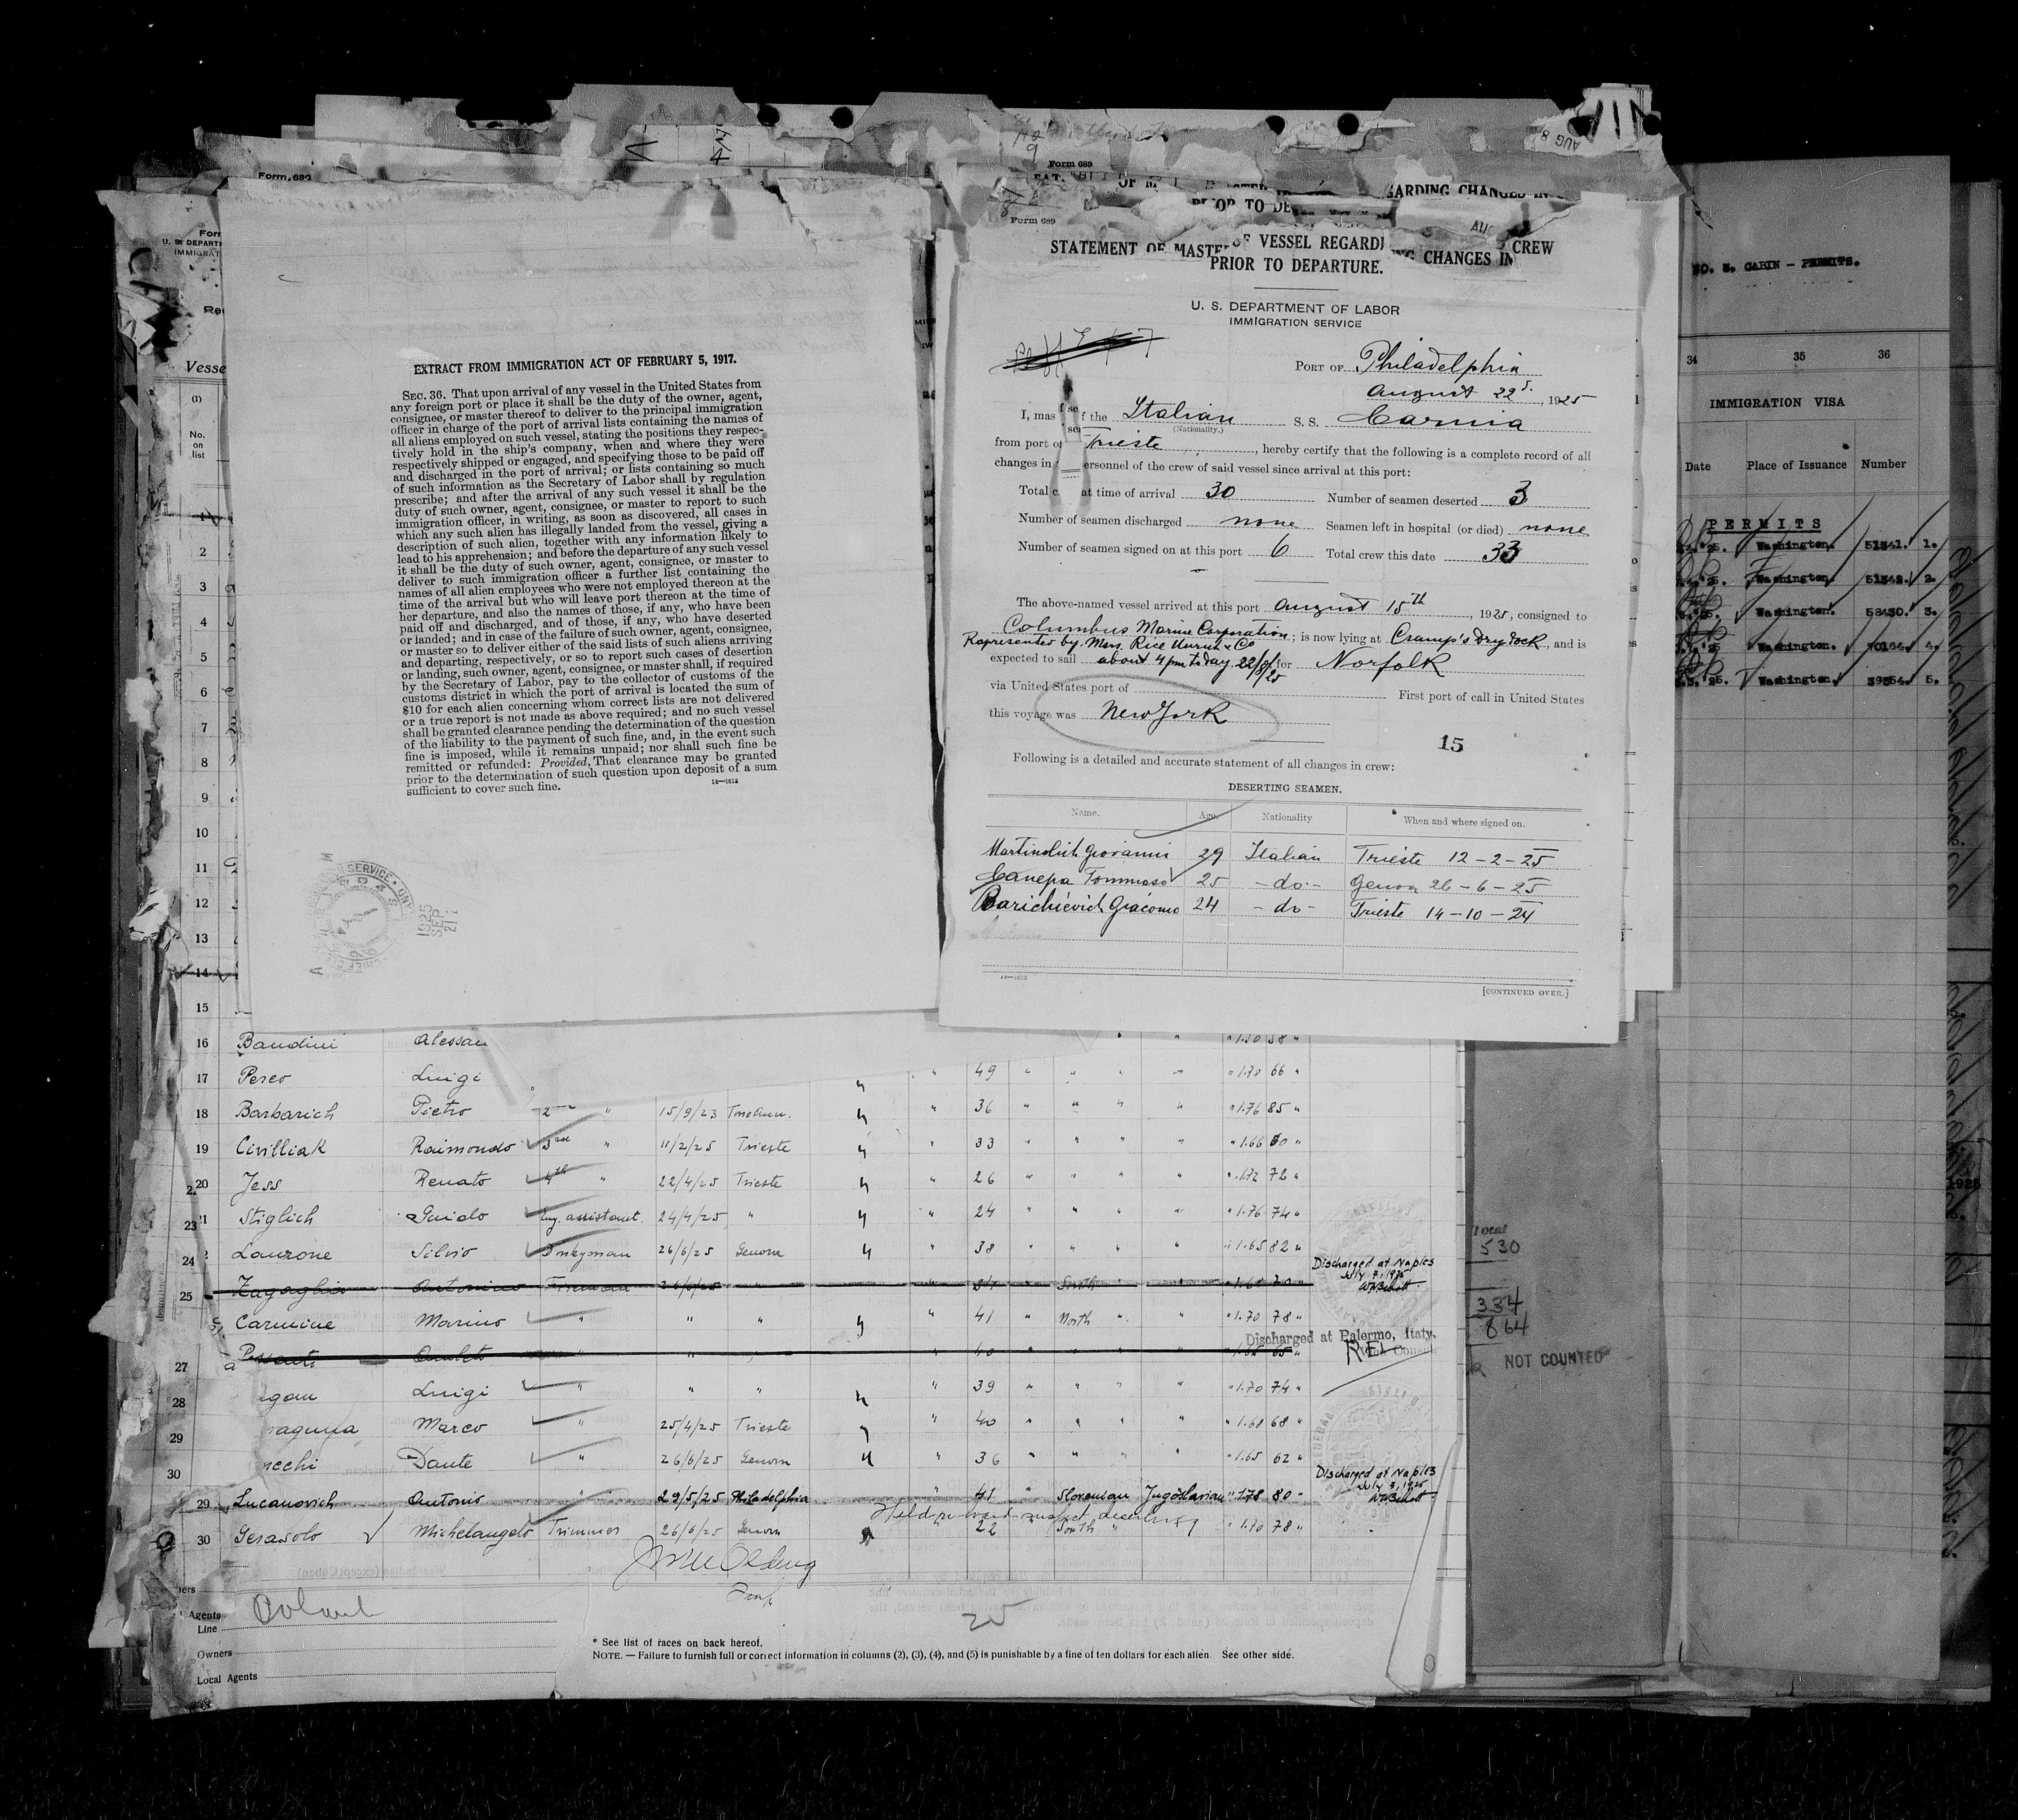 Form 689
Form 689
STATEMENT OF MASTER OF VESSEL REGARDING CHANGES IN CREW
PRIOR TO DEPARTURE.
U. S. DEPARTMENT OF LABOR
IMMIGRATION SERVICE
PORT OF Philadelphia
August 22, 1925
I, mas f the Italian S. S. Carnia
(Nationality.)
from port of Trieste, hereby certify that the following is a complete record of all
changes in ersonnel of the crew of said vessel since arrival at this port:
Total c at time of arrival 30 Number of seamen deserted 3
Number of seamen discharged none Seamen left in hospital (or died) none
Number of seamen signed on at this port 6 Total crew this date 33
The above-named vessel arrived at this port August 15th, 1925, consigned to
Columbus Marine Corporation; is now lying at Cramp's Dry dock, and is
Represented by Mess. Rice Unruh & Co
expected to sail about 4 pm to day 22/8/25 for Norfolk
via United States port of First port of call in United States
this voyage was New York
15
Following is a detailed and accurate statement of all changes in crew:
DESERTING SEAMEN.
Name. Age. Nationality When and where signed on.
Martinolich Giovanni 29 Italian Trieste 12-2-25
Canepa Tommaso 25 -do- Genova 26-6-25
Barichievich Giacomo 24 -do- Trieste 14-10-24
14—1613
[CONTINUED OVER.]
EXTRACT FROM IMMIGRATION ACT OF FEBRUARY 5, 1917.
SEC. 36. That upon arrival of any vessel in the United States from
any foreign port or place it shall be the duty of the owner, agent,
consignee, or master thereof to deliver to the principal immigration
officer in charge of the port of arrival lists containing the names of
all aliens employed on such vessel, stating the positions they respec-
tively hold in the ship's company, when and where they were
respectively shipped or engaged, and specifying those to be paid off
and discharged in the port of arrival; or lists containing so much
of such information as the Secretary of Labor shall by regulation
prescribe; and after the arrival of any such vessel it shall be the
duty of such owner, agent, consignee, or master to report to such
immigration officer, in writing, as soon as discovered, all cases in
which any such alien has illegally landed from the vessel, giving a
description of such alien, together with any information likely to
lead to his apprehension; and before the departure of any such vessel
it shall be the duty of such owner, agent, consignee, or master to
deliver to such immigration officer a further list containing the
names of all alien employees who were not employed thereon at the
time of the arrival but who will leave port thereon at the time of
her departure, and also the names of those, if any, who have been
paid off and discharged, and of those, if any, who have deserted
or landed; and in case of the failure of such owner, agent, consignee,
or master so to deliver either of the said lists of such aliens arriving
and departing, respectively, or so to report such cases of desertion
or landing, such owner, agent, consignee, or master shall, if required
by the Secretary of Labor, pay to the collector of customs of the
customs district in which the port of arrival is located the sum of
$10 for each alien concerning whom correct lists are not delivered
or a true report is not made as above required; and no such vessel
shall be granted clearance pending the determination of the question
of the liability to the payment of such fine, and, in the event such
fine is imposed, while it remains unpaid; nor shall such fine be
remitted or refunded: Provided, That clearance may be granted
prior to the determination of such question upon deposit of a sum
sufficient to cover such fine.
14—1613
1925 SEP 21
No. on list
16 Bandini Alessan
17 Perco Luigi 49 " " " " " 1.70 66 "
18 Barbarich Pietro 2 " 15/9/23 " 36 " " " " " 1.76 85 "
19 Civilliak Raimondo 3rd " 11/2/25 Trieste " 33 " " " " " 1.66 60 "
20 Jess Renato 4th " 22/4/25 Trieste " 26 " " " " " 1.72 72 "
Stiglich Guido Eng. assistant. 24/4/25 " " 24 " " " " " 1.76 74 "
Laurone Silvio Donkyman 26/6/25 Genova " 38 " " " " " 1.65 82 "
Zagaglia Antonino Fireman 26/6/25 " South
Discharged at Naples
July 7, 1925
Carmine Marino " " " " 41 " North " " " 1.70 78 "
Discharged at Palermo, Italy.
Luigi " " " " 39 " " " " " 1.70 74 "
Marco " 25/4/25 Trieste " 40 " " " " " 1.68 68 "
Dante " 26/6/25 Genova " 36 " " " " " 1.65 62 "
Discharged at Naples
July 7, 1925
29 Lucanovich Antonio " 29/5/25 Philadelphia " 41 " Slovenian Jugoslavian " 1.78 80 "
30 Gerasolo Michelangelo Trimmer 26/6/25 Genova " 22 " South " " " 1.70 78 "
Agents
Line
Owners
Local Agents
25
* See list of races on back hereof.
NOTE. — Failure to furnish full or correct information in columns (2), (3), (4), and (5) is punishable by a fine of ten dollars for each alien. See other side.
NO. 3. CABIN - PERMITS.
34 35 36
IMMIGRATION VISA
Date Place of Issuance Number
PERMITS
'25. Washington. 51341. 1.
'25. Washington. 51342. 2.
'25. Washington. 58430. 3.
'25. Washington. 70164. 4.
'25. Washington. 39354. 5.
Total
530
334
864
NOT COUNTED